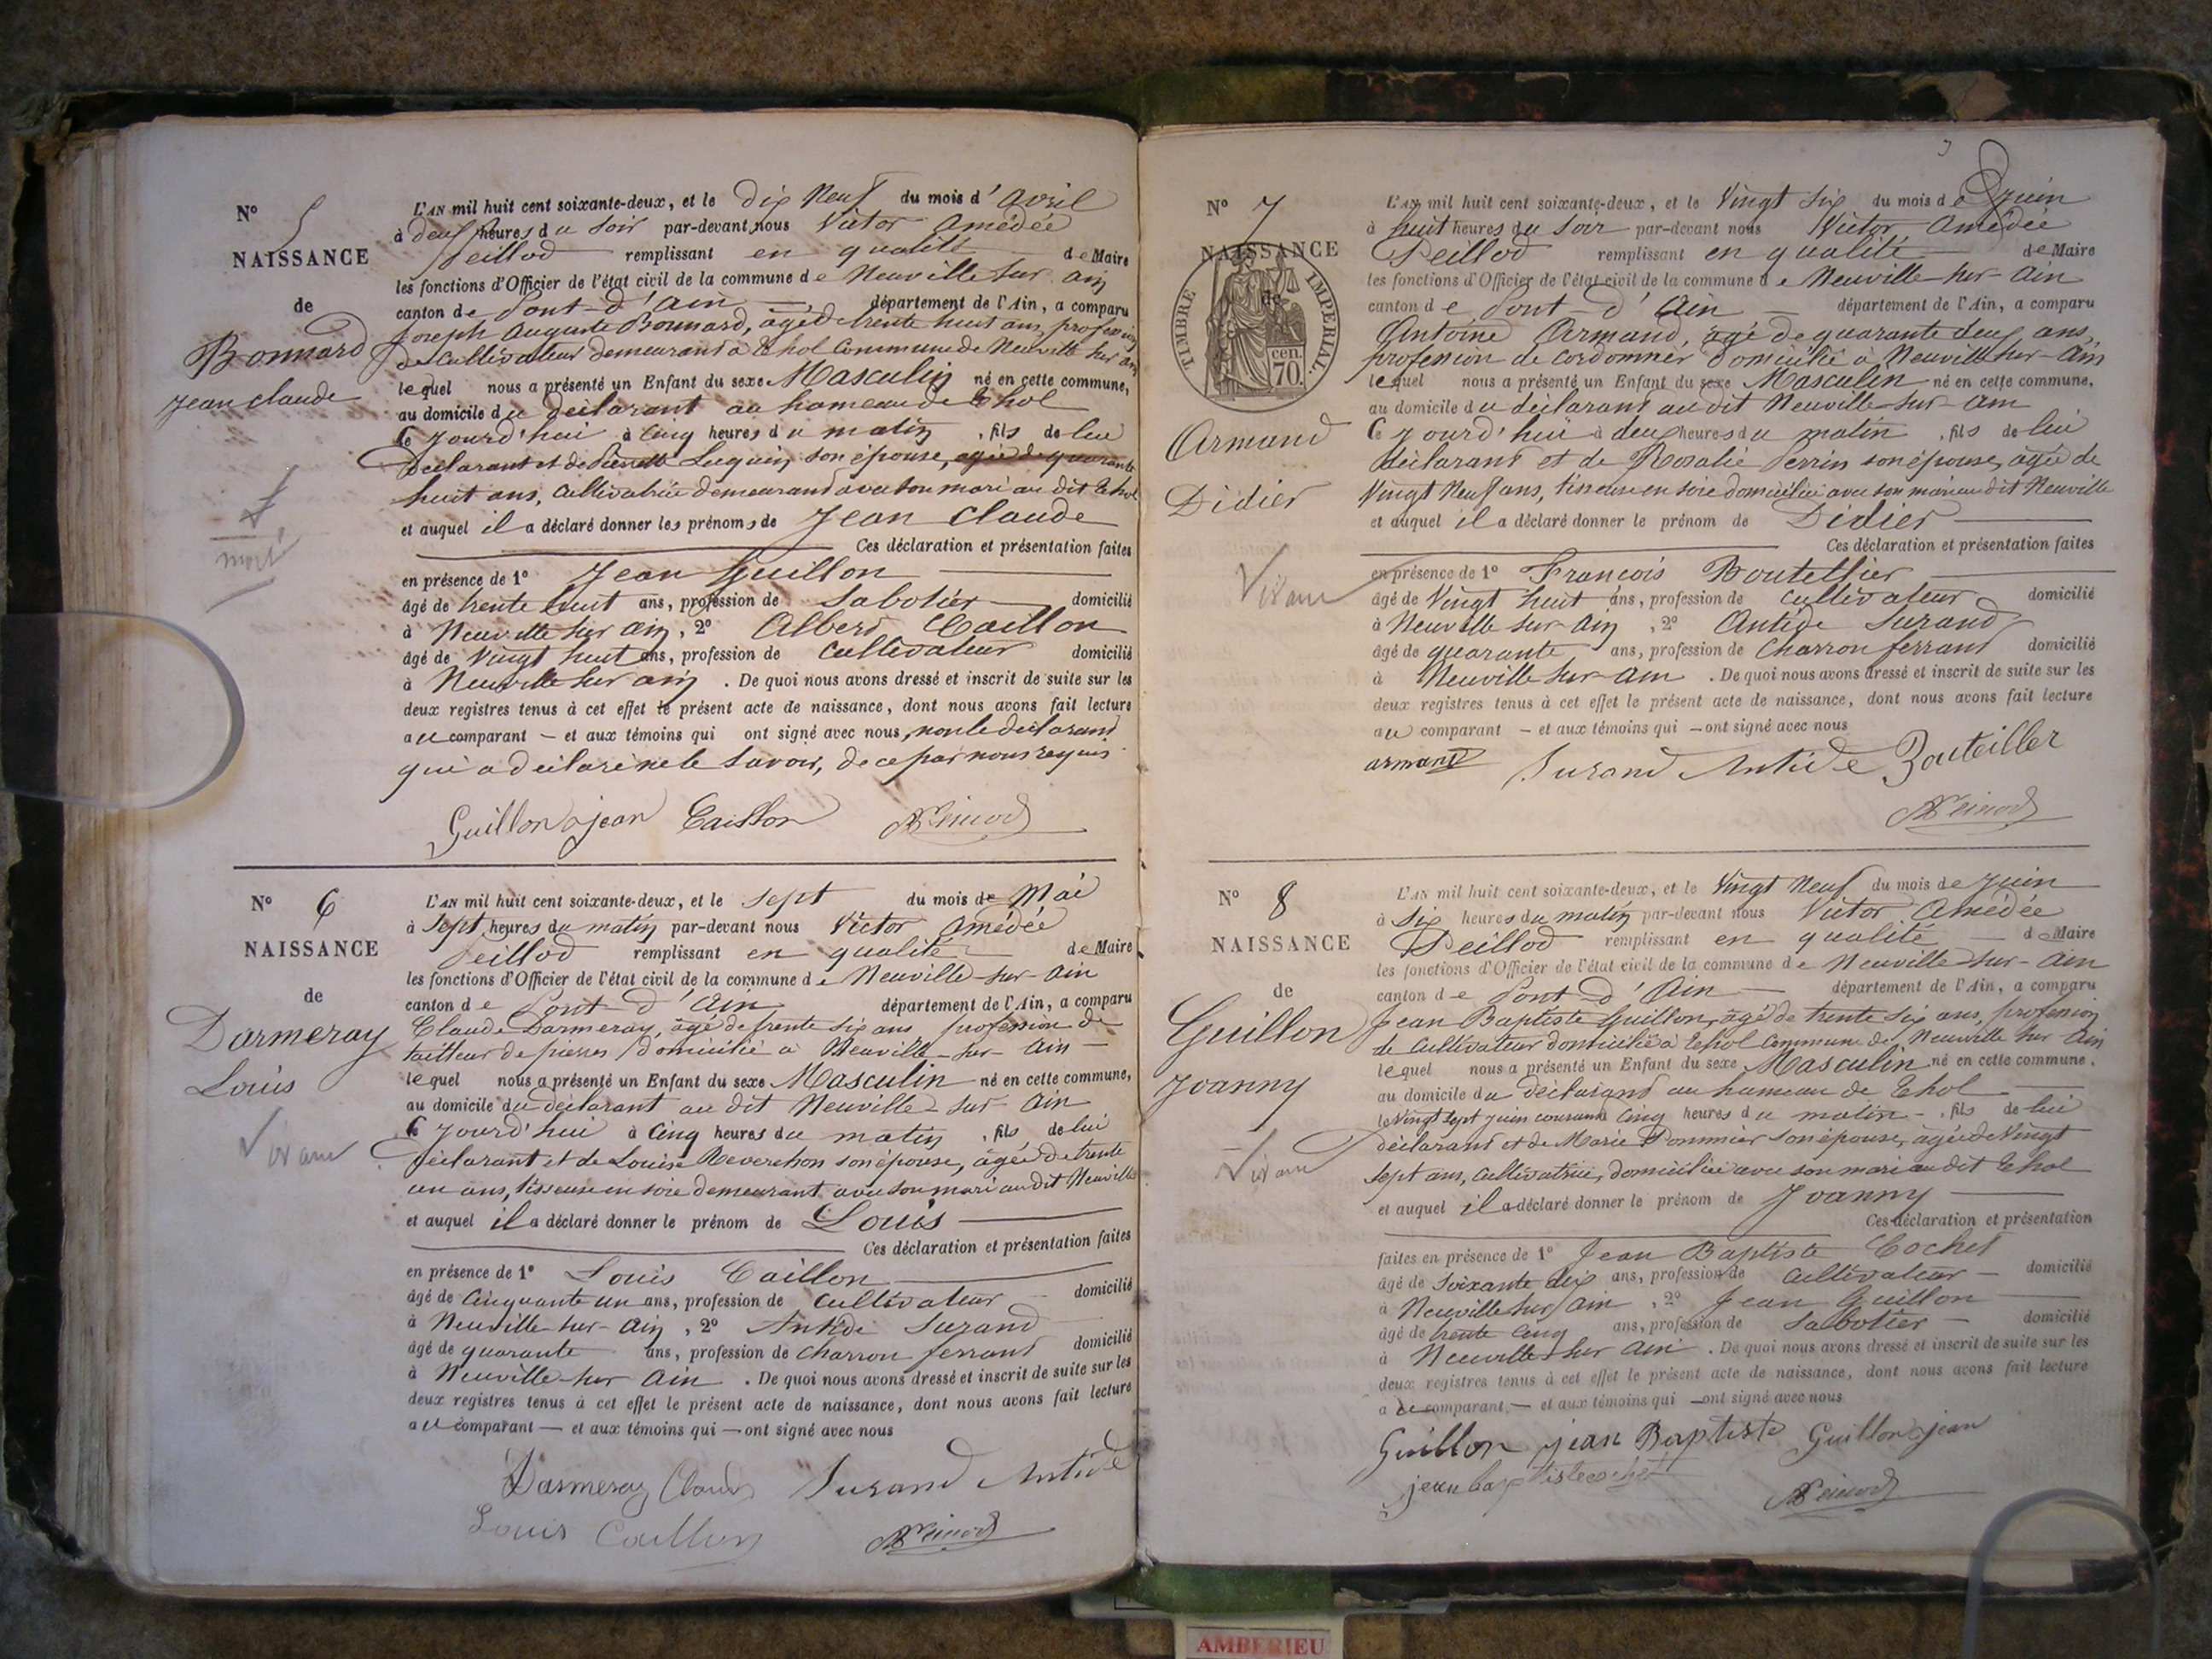 N° 5
NAISSANCE
de
Bonnard
Jean Claude
mort
L'AN mil huit cent soixante-deux, et le dix neuf du mois d'avril
à deux heures du soir par-devant nous Victor Amédée
Peillod remplissant en qualité de Maire
les fonctions d'Officier de l'état civil de la commune de Neuville sur ain
canton de Pont-d'ain département de l'Ain, a comparu
Joseph Auguste Bonnard, âgé de trente huit ans, profession
de Cultivateur demeurant à Thol Commune de Neuville sur ain
lequel nous a présenté un Enfant du sexe Masculin né en cette commune,
au domicile du déclarant au hameau de Thol
Ce Jourd'hui à Cinq heures du matin, fils de lui
Déclarant et de Luquin, son épouse, agée de quarante
huit ans, Cultivatrice demeurand avec son mari au dit Thol
et auquel il a déclaré donner les prénoms de Jean Claude
Ces déclaration et présentation faites
en présence de 1° Jean Guillon
âgé de trente huit ans, profession de Sabotier domicilié
à Neuville sur ain, 2° Albert Caillon
âgé de Vingt huit ans, profession de Cultivateur domicilié
à Neuville sur ain. De quoi nous avons dressé et inscrit de suite sur les
deux registres tenus à cet effet le présent acte de naissance, dont nous avons fait lecture
au comparant — et aux témoins qui ont signé avec nous, non le déclarant
qui a déclaré ne le Savoir, de ce par nous requis
Guillon jean Caillon
N° 6
NAISSANCE
de
Darmeray
Louis
Vivant
L'AN mil huit cent soixante-deux, et le Sept du mois de Mai
à Sept heures du matin par-devant nous Victor Amédée
Peillod remplissant en qualité de Maire
les fonctions d'Officier de l'état civil de la commune de Neuville-sur-Ain
canton de Pont-d'Ain département de l'Ain, a comparu
Claude Darmeray, âgé de trente six ans profession de
tailleur de pierres domicilié à Neuville-sur-Ain —
lequel nous a présenté un Enfant du sexe Masculin né en cette commune,
au domicile du déclarant au dit Neuville-sur-Ain
Ce Jourd'hui à Cinq heures du matin, fils de lui
Déclarant et de Louise Reverchon son épouse, âgée de trente
un ans, tisseuse en soie demeurant avec son mari au dit Neuville
et auquel il a déclaré donner le prénom de Louis
Ces déclaration et présentation faites
en présence de 1° Louis Caillon
âgé de Cinquante un ans, profession de Cultivateur domicilié
à Neuville-sur-Ain, 2° Antide Surand
âgé de quarante ans, profession de Charron ferrant domicilié
à Neuville-sur Ain. De quoi nous avons dressé et inscrit de suite sur les
deux registres tenus à cet effet le présent acte de naissance, dont nous avons fait lecture
au comparant — et aux témoins qui — ont signé avec nous
Darmeray Claude Surand Antide
Louis Caillon
N° 7
NAISSANCE
de
TIMBRE IMPERIAL.
70 cen.
Armand
Didier
Vivant
L'AN mil huit cent soixante-deux, et le Vingt Six du mois de Juin
à huit heures du Soir par-devant nous Victor Amédée
Peillod remplissant en qualité de Maire
les fonctions d'Officier de l'état civil de la commune de Neuville-sur-Ain
canton de Pont-d'Ain — département de l'Ain, a comparu
Antoine Armand, âgé de quarante deux ans,
profession de Cordonnier domicilié à Neuville sur-Ain
lequel nous a présenté un Enfant du sexe Masculin né en cette commune,
au domicile du déclarant au dit Neuville-sur-Ain
Ce Jourd'hui à deux heures du matin, fils de lui
déclarant et de Rosalie Perrin son épouse, agée de
Vingt Neuf ans, tisseuse en soie domiciliée avec son mari au dit Neuville
et auquel il a déclaré donner le prénom de Didier
Ces déclaration et présentation faites
en présence de 1° François Boutellier
âgé de Vingt huit ans, profession de Cultivateur domicilié
à Neuville sur-Ain, 2° Antide Surand
âgé de quarante ans, profession de Charron ferrant domicilié
à Neuville sur-Ain. De quoi nous avons dressé et inscrit de suite sur les
deux registres tenus à cet effet le présent acte de naissance, dont nous avons fait lecture
au comparant — et aux témoins qui — ont signé avec nous
armand Surand Antide Bouteiller
N° 8
NAISSANCE
de
Guillon
Joanny
Vivant
L'AN mil huit cent soixante-deux, et le Vingt Neuf du mois de Juin
à Six heures du matin par-devant nous Victor Amédée
Peillod remplissant en qualité de Maire
les fonctions d'Officier de l'état civil de la commune de Neuville-sur-Ain
canton de Pont-d'Ain — département de l'Ain, a comparu
Jean Baptiste Guillon, âgé de trente Six ans, profession
de Cultivateur domicilié à Thol Commune de Neuville sur Ain
lequel nous a présenté un Enfant du sexe Masculin né en cette commune,
au domicile du déclarant au hameau de Thol
le Vingt Sept Juin courant Cinq heures du matin -, fils de lui
déclarant et de Marie Pommier Son épouse, âgée de Vingt
Sept ans, Cultivatrice, domiciliée avec son mari au dit Thol
et auquel il a déclaré donner le prénom de Joanny
Ces déclaration et présentation
faites en présence de 1° Jean Baptiste Cochet
âgé de Soixante dix ans, profession de Cultivateur — domicilié
à Neuville sur Ain, 2° Jean Guillon
âgé de trente Cinq ans, profession de Sabotier — domicilié
à Neuville sur Ain. De quoi nous avons dressé et inscrit de suite sur les
deux registres tenus à cet effet le présent acte de naissance, dont nous avons fait lecture
au comparant, — et aux témoins qui — ont signé avec nous
Guillon jean Baptiste Guillon jean
jean baptiste cochet
AMBERIEU